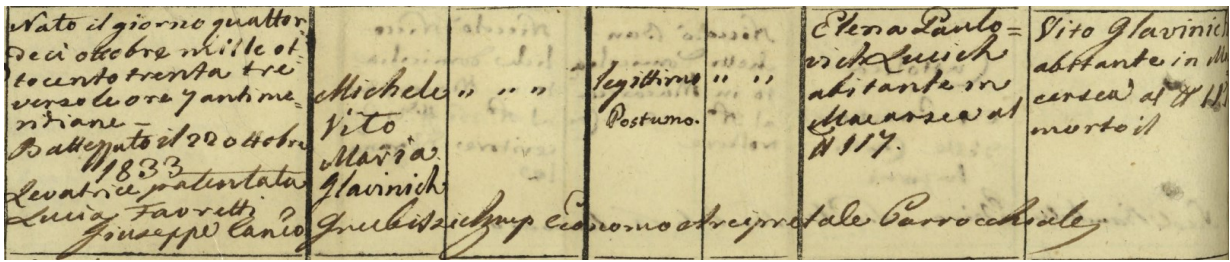 Nato il giorno quattor
deci ottobre mille ot
tocento trenta tre
verso le ore 7 antime
ridiane =
Battezzato il 22 ottobre
1833
Levatrice patentata
Lucia Favretti
Giuseppe Canco
Michele
Vito
Maria
Glavinich
" " "
legittimo
Postumo.
" "
Elena Paulo=
vich Lucich
abitante in
Macarsca al
N 117.
Vito Glavinich
abitante in Ma
carsca al N
morto il
Economo Arcipretale Parrocchiale